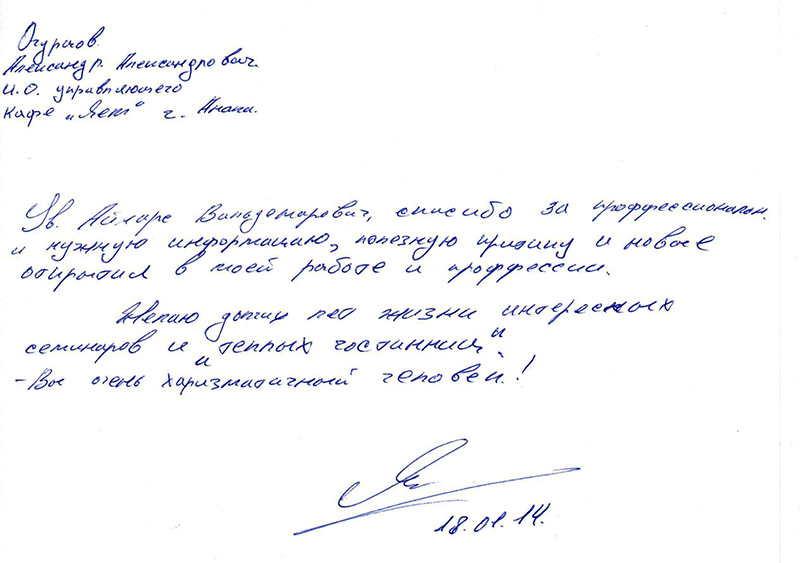 Огурцов
Александр Александрович.
И.О. управляющего
кафе „Лет“ г. Анапа.
Ув. Айварс Вальдемарович, спасибо за проффессионализм.
и нужную информацию, полезную критику и новые
открытия в моей работе и проффессии.
Желаю долгих лет жизни интересных
семинаров и „теплых гостинниц“.
- Вы очень харизматичный человек!
18.01.14.